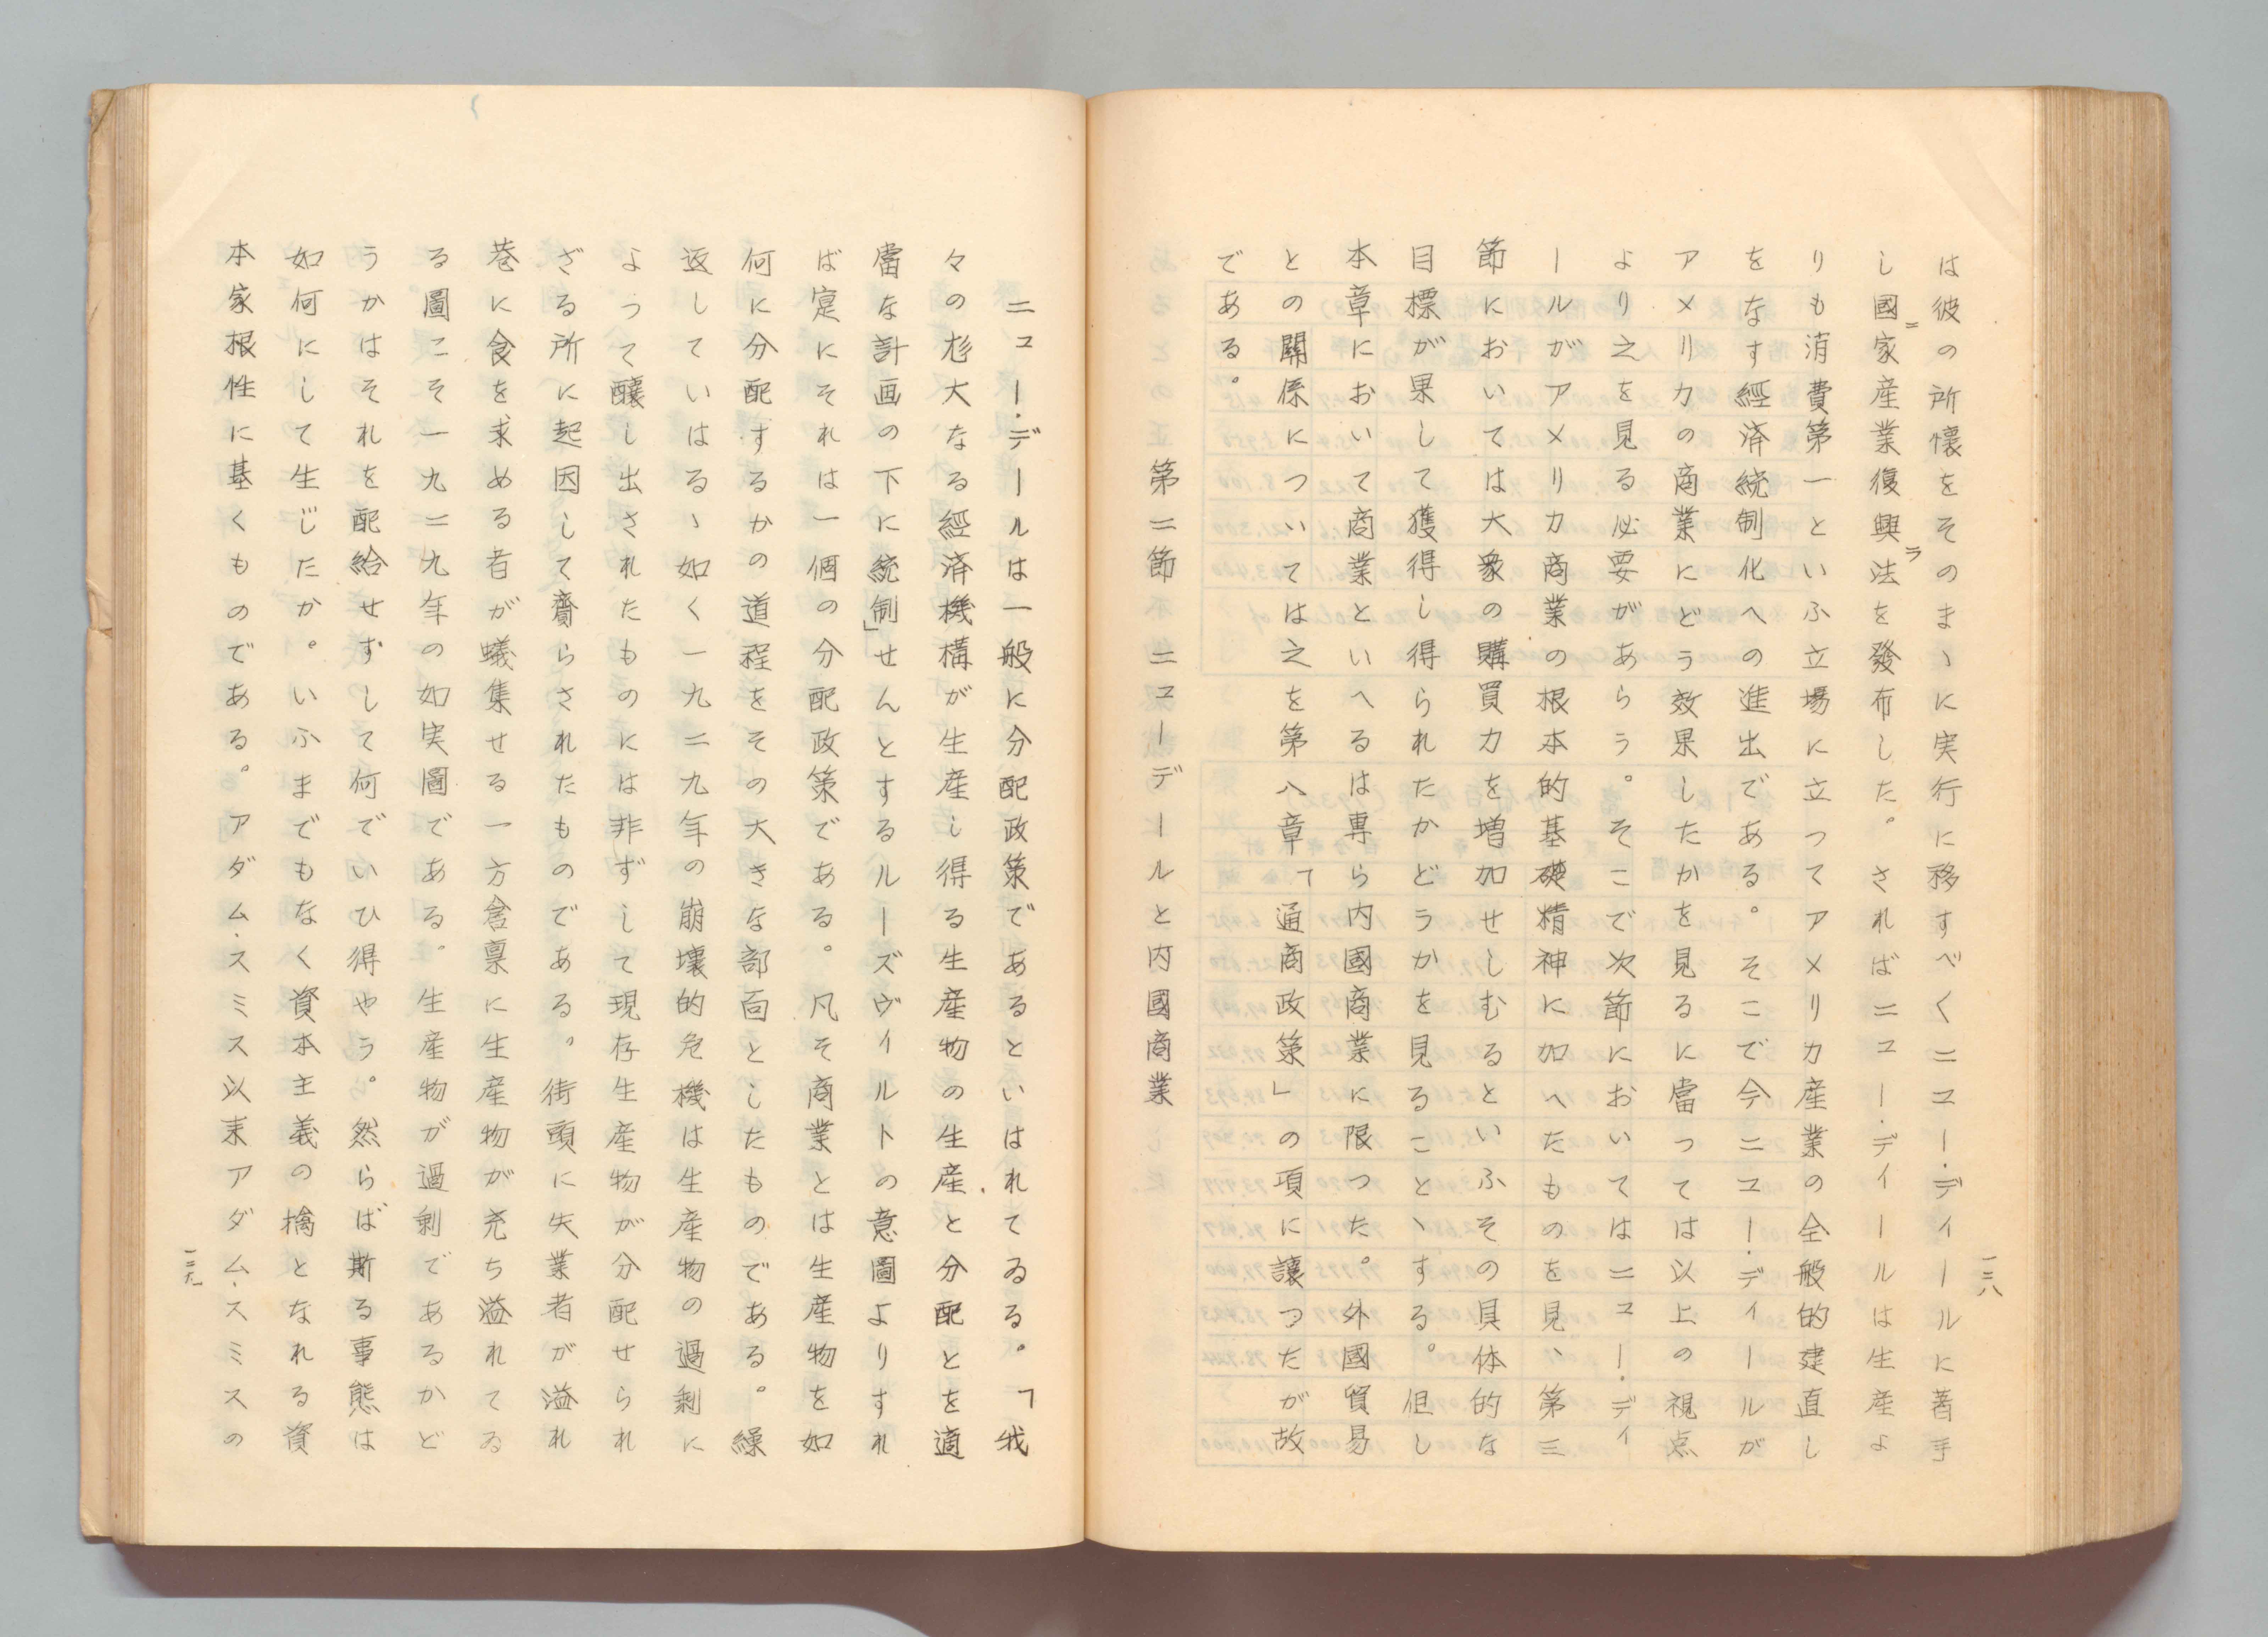 一三八
は彼の所懐をそのまヽに実行に移すべくニユー・デイールに著手
し國家産業復興法を發布した。さればニユー・デイールは生産よ
ニ
ラ
りも消費第一といふ立場に立つてアメリカ産業の全般的建直し
をなす經済統制化への進出である。そこで今ニユー・デイールが
アメリカの商業にどう效果したかを見るに當つては以上の視点
より之を見る必要があらう。そこで次節においてはニユー・デイ
ールがアメリカ商業の根本的基礎精神に加へたものを見、第三
節においては大衆の購買力を増加せしむるといふその具体的な
目標が果して獲得し得られたかどうかを見ることヽする。但し
本章において商業といへるは專ら内國商業に限つた。外國貿易
との關係については之を第八章「通商政策」の項に讓つたが故
である。
第二節 ニユーデールと内國商業
ニユー・デールは一般に分配政策であるといはれてゐる。「我
々の尨大なる經済機構が生産し得る生産物の生産と分配とを適
當な計画の下に統制」せんとするルーズヴイルトの意圖よりすれ
ば寔にそれは一個の分配政策である。凡そ商業とは生産物を如
何に分配するかの道程をその大きな部面としたものである。繰
返していはるヽ如く一九二九年の崩壞的危機は生産物の過剰に
よつて釀し出されたものには非ずして現存生産物が分配せられ
ざる所に起因して齎らされたものである。街頭に失業者が溢れ
巷に食を求める者が蟻集せる一方倉禀に生産物が充ち溢れてゐ
る圖こそ一九二九年の如実圖である。生産物が過剰であるかど
うかはそれを配給せずして何でいひ得やう。然らば斯る事態は
如何にして生じたか。いふまでもなく資本主義の擒となれる資
本家根性に基くものである。アダム・スミス以来アダム・スミスの